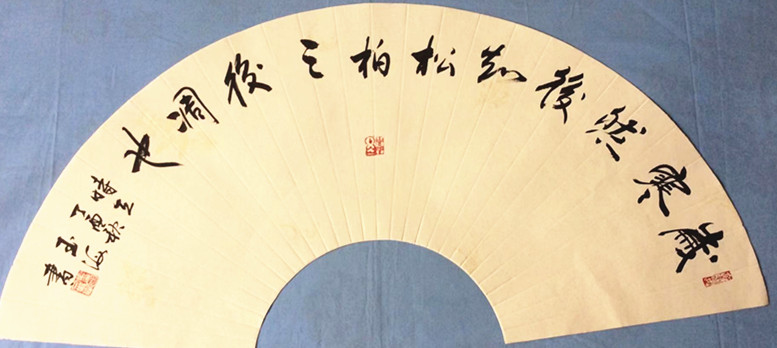 歲寒然後知松柏之後凋也
丁酉
書